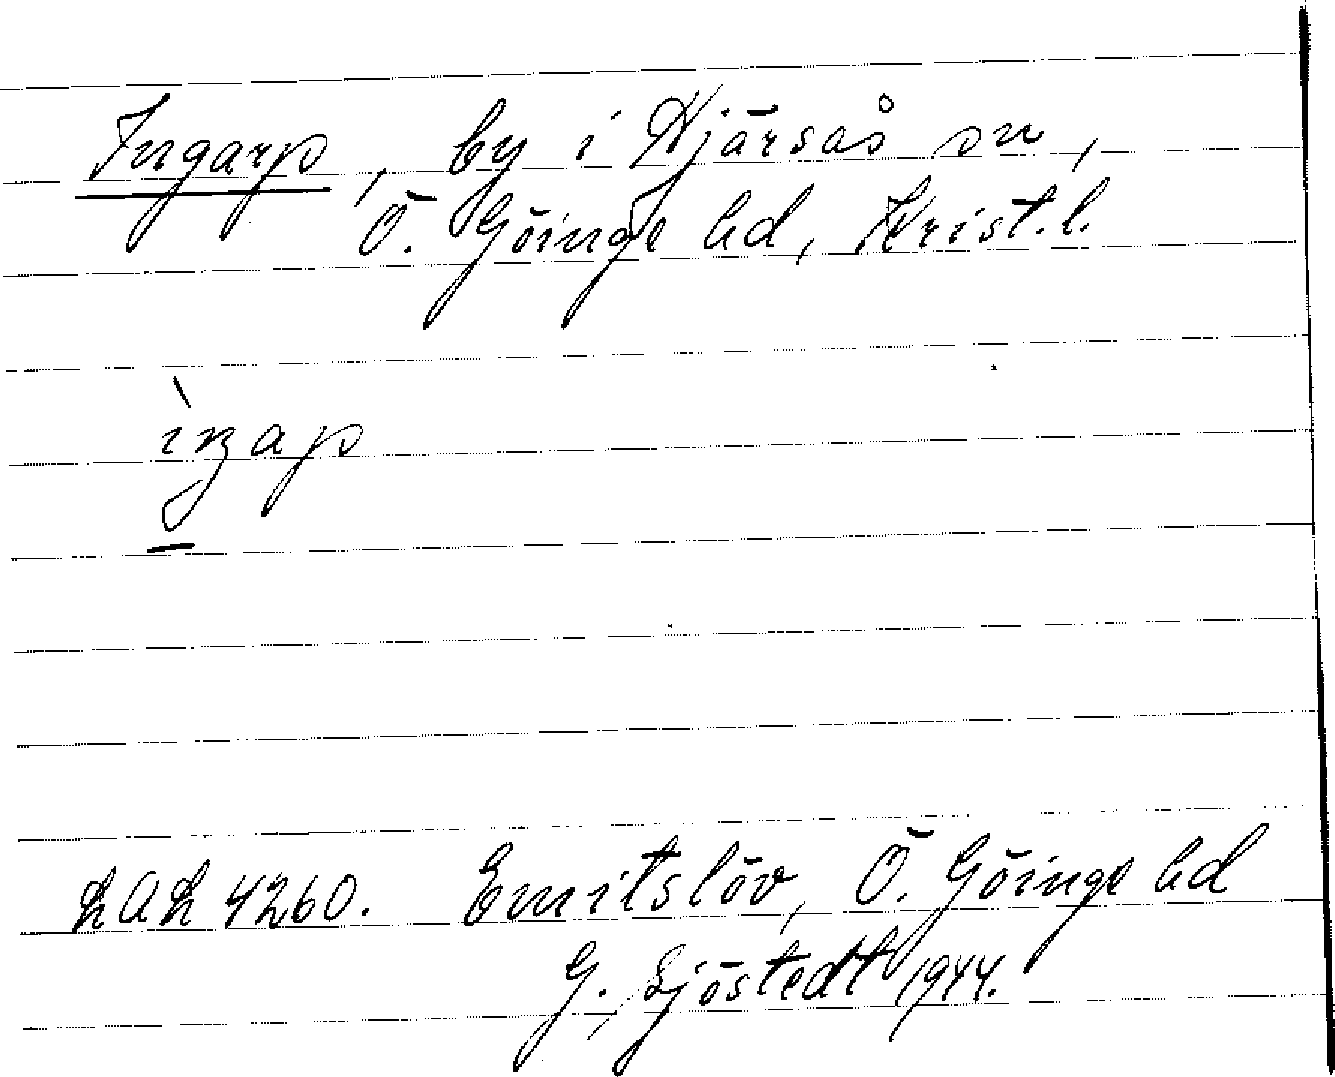 Ingarp, by i Hjärsås sn,
Ö. Göinge hd, Krist.l.
ìŋap
LAL 4260. Emitslöv, Ö. Göinge hd
G. Sjöstedt 1944.